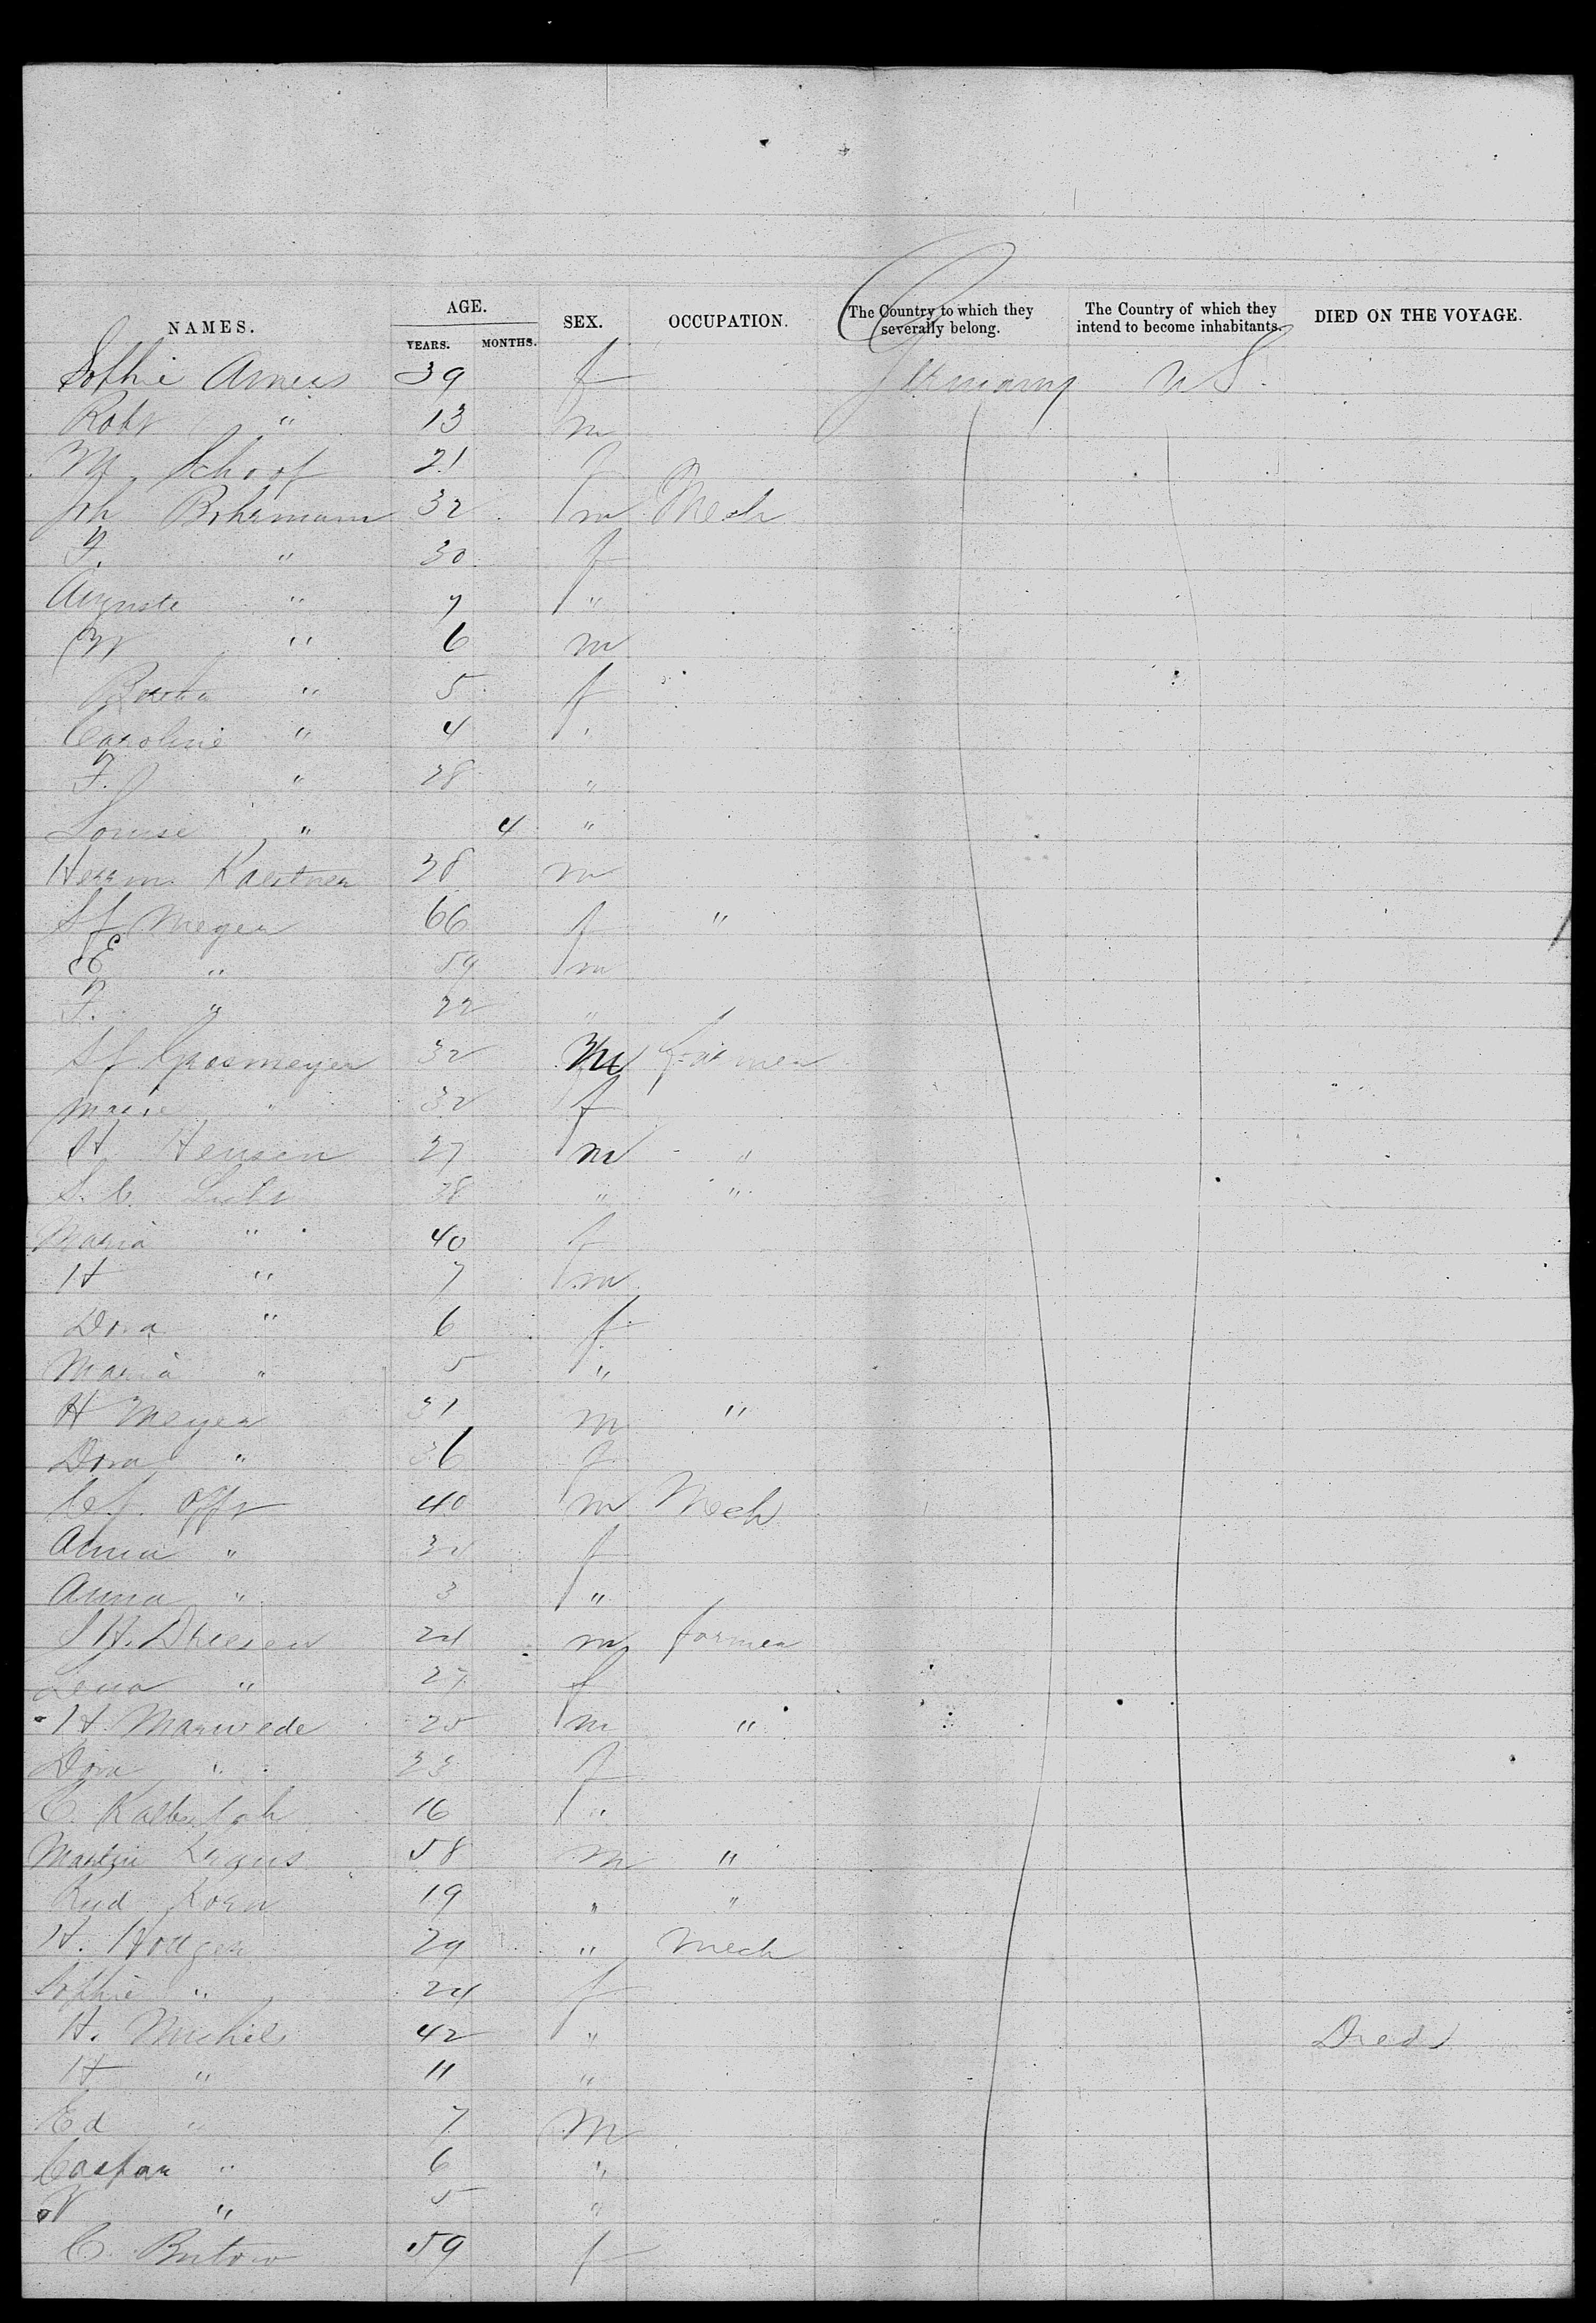 NAMES. AGE. SEX. OCCUPATION. The Country to which they severally belong. The Country of which they intend to become inhabitants. DIED ON THE VOYAGE.
YEARS. MONTHS.
Sophie Arneus 39 f Germany U S.
Robt " 13 m
M. Schoof 21 f
Joh Bohrmann 32 m Mech
F. " 30 f
Auguste " 7 "
W " 6 m
Bertha " 5 f
Caroline " 4 "
F. " 28 "
Louise " 4 "
Herrm. Kaestner 28 m
Meyer 66 f "
E " 59 m
F. " 22 "
32 M Farmer
Marie " 32 f
H Hensen 27 m "
S. C. 38 " "
Maria " 40 f
H " 7 m
Dora " 6 f
Maria " 5 "
H Meyer 31 m "
Dora " 36 f
40 m Mech
Anna " 34 f
Anna " 3 "
J H. Driesen 24 m farmer
Lena " 27 f
H. Marwede 25 m "
Dora " 23 f
C. 16 "
Martin 58 m "
Rud Korn 19 " "
H. Hottger 29 " Mech
Sophie " 24 f
H. Michels 42 " Died
H " 11 "
Ed " 7 M
Caspar " 6 "
" 5 "
C. Butow 59 f